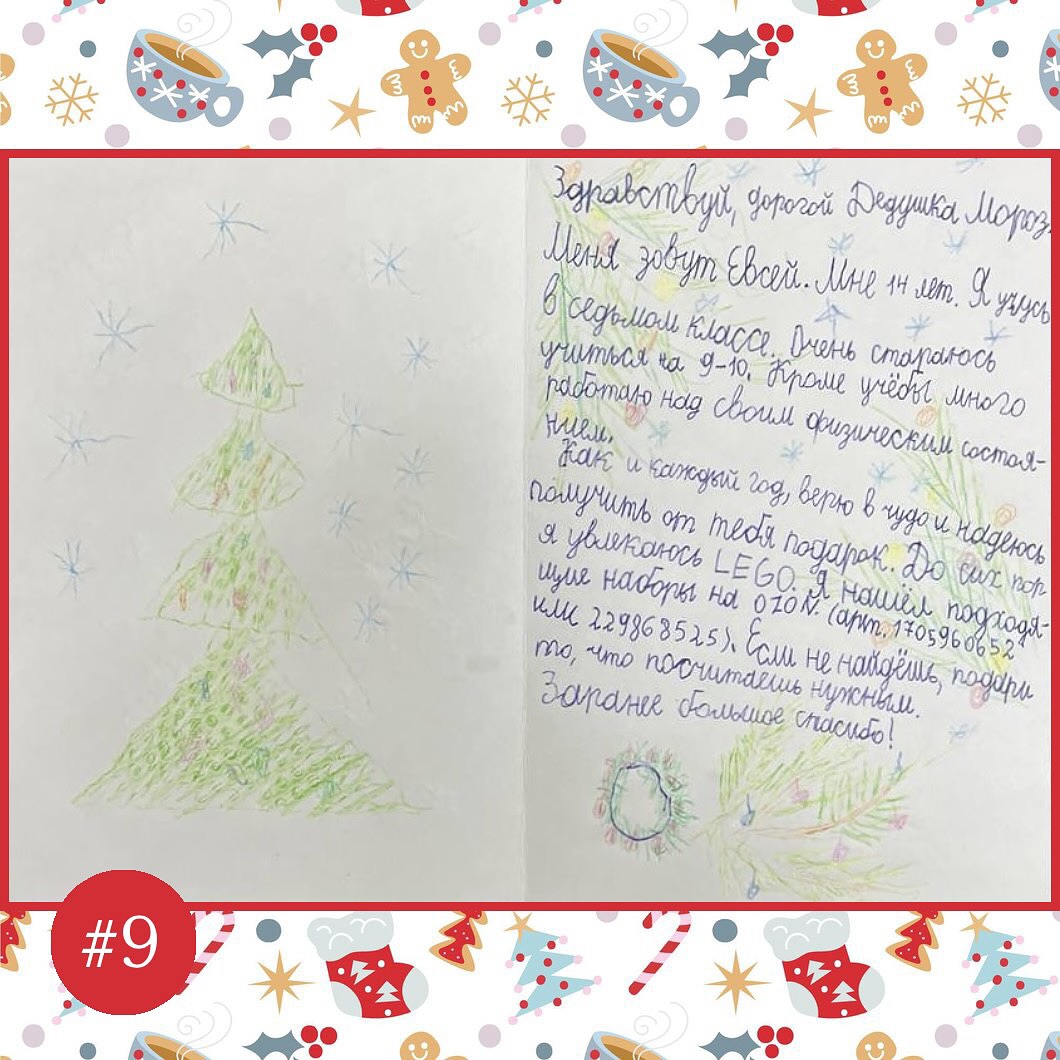 Здравствуй, дорогой Дедушка Мороз.
Меня зовут Евсей. Мне 14 лет. Я учусь
в седьмом классе. Очень стараюсь
учиться на 9-10. Кроме учёбы много
работаю над своим физическим состоя-
нием.
Как и каждый год, верю в чудо и надеюсь
получить от тебя подарок. До сих пор
я увлекаюсь LEGO. Я нашёл подходя-
щие наборы на OZON (арт. 1705960652
или 229868525). Если не найдёшь, подари
то, что посчитаешь нужным.
Заранее большое спасибо!
#9